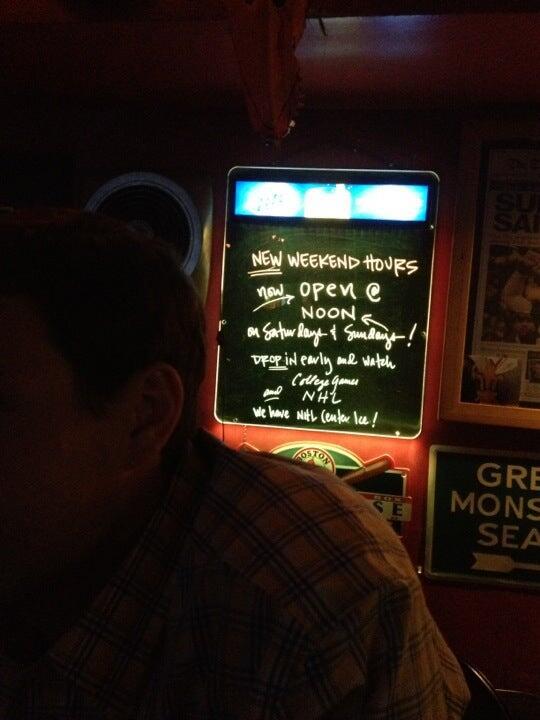 NEW WEEKEND HOURS
now open @
NOON
on Saturdays & Sundays!
DROP IN early and watch
College Games
and NHL
We have NHL Center Ice!
BOSTON
SE
GRE
MONS
SEA
SU
SA